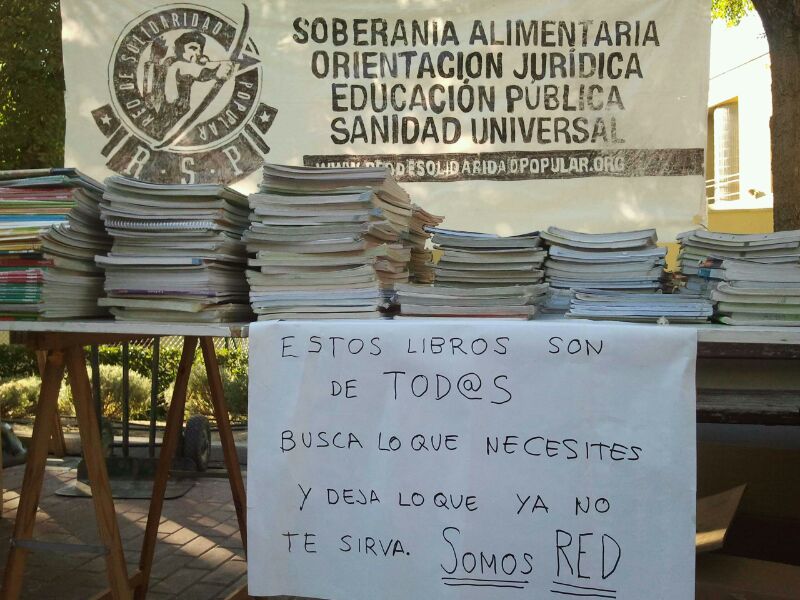 RED DE SOLIDARIDAD POPULAR
R·S·P
SOBERANÍA ALIMENTARIA
ORIENTACIÓN JURÍDICA
EDUCACIÓN PÚBLICA
SANIDAD UNIVERSAL
WWW.REDDESOLIDARIDADPOPULAR.ORG
ESTOS LIBROS SON
DE TOD@S
BUSCA LO QUE NECESITES
Y DEJA LO QUE YA NO
TE SIRVA. SOMOS RED